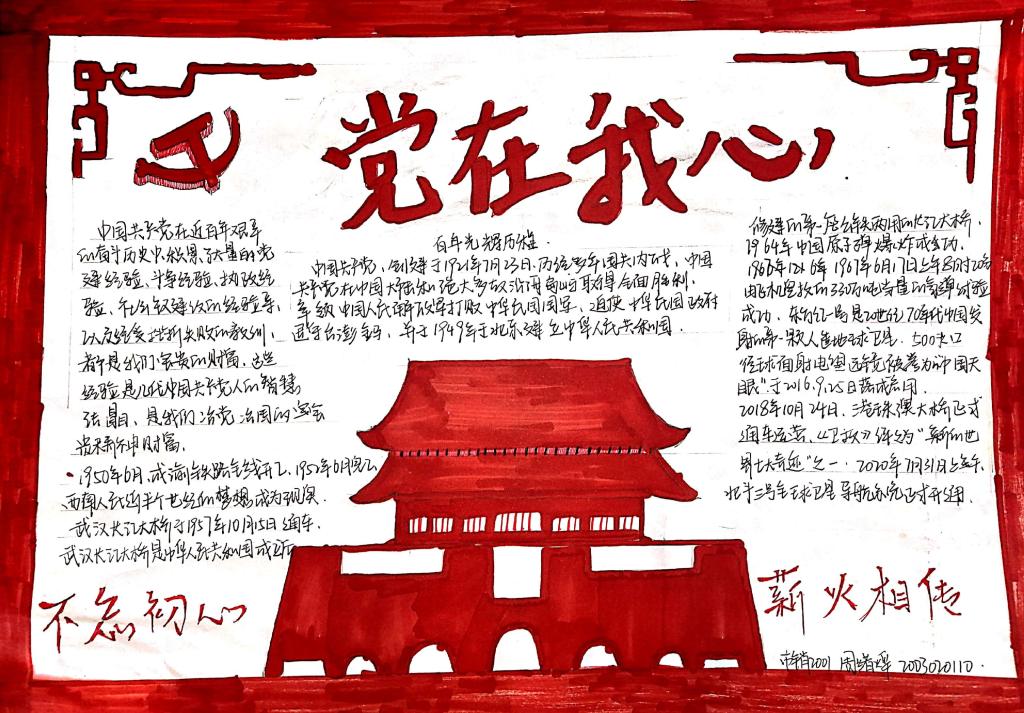 党在我心
中国共产党在近百年艰辛
的奋斗历史中，积累了大量的党
建经验、斗争经验、执政经
验、社会主义建设的经验等，
以及经受挫折失败的教训，
都是我们宝贵的财富。这些
经验是几代中国共产党人的智慧
结晶，是我们治党治国的
财富。
·1950年6月，成渝铁路全线开工，1952年6月完工，
西南人民近半个世纪的梦想成为现实。
武汉长江大桥于1957年10月15日通车，
武汉长江大桥是中华人民共和国成立后
百年光辉历程
中国共产党，创建于1921年7月23日，历经多年国共内战，中国
共产党在中国大陆和绝大多数沿海岛屿取得全面胜利，
率领中国人民解放军打败中华民国国军，迫使中华民国政府
退守台澎金马，并于1949年于北京建立中华人民共和国。
修建的第一座公铁两用的长江大桥。
1964年中国原子弹爆炸成功。
1966年12 1967年6月17日上午8时20分
由飞机空投的330万吨当量的氢弹试验
成功。东方红一号是20世纪70年代中国发
射的第一颗人造地球卫星。500米口
径球面射电望远镜被誉为“中国天
眼”于2016.9.25日落成启用。
2018年10月24日，港珠澳大桥正式
通车运营，《卫报》称为“新的世
界七大奇迹”之一。2020年7月31日上午，
北斗三号全球卫星导航系统正式开通。
不忘初心
薪火相传
2001 周 2003020110.